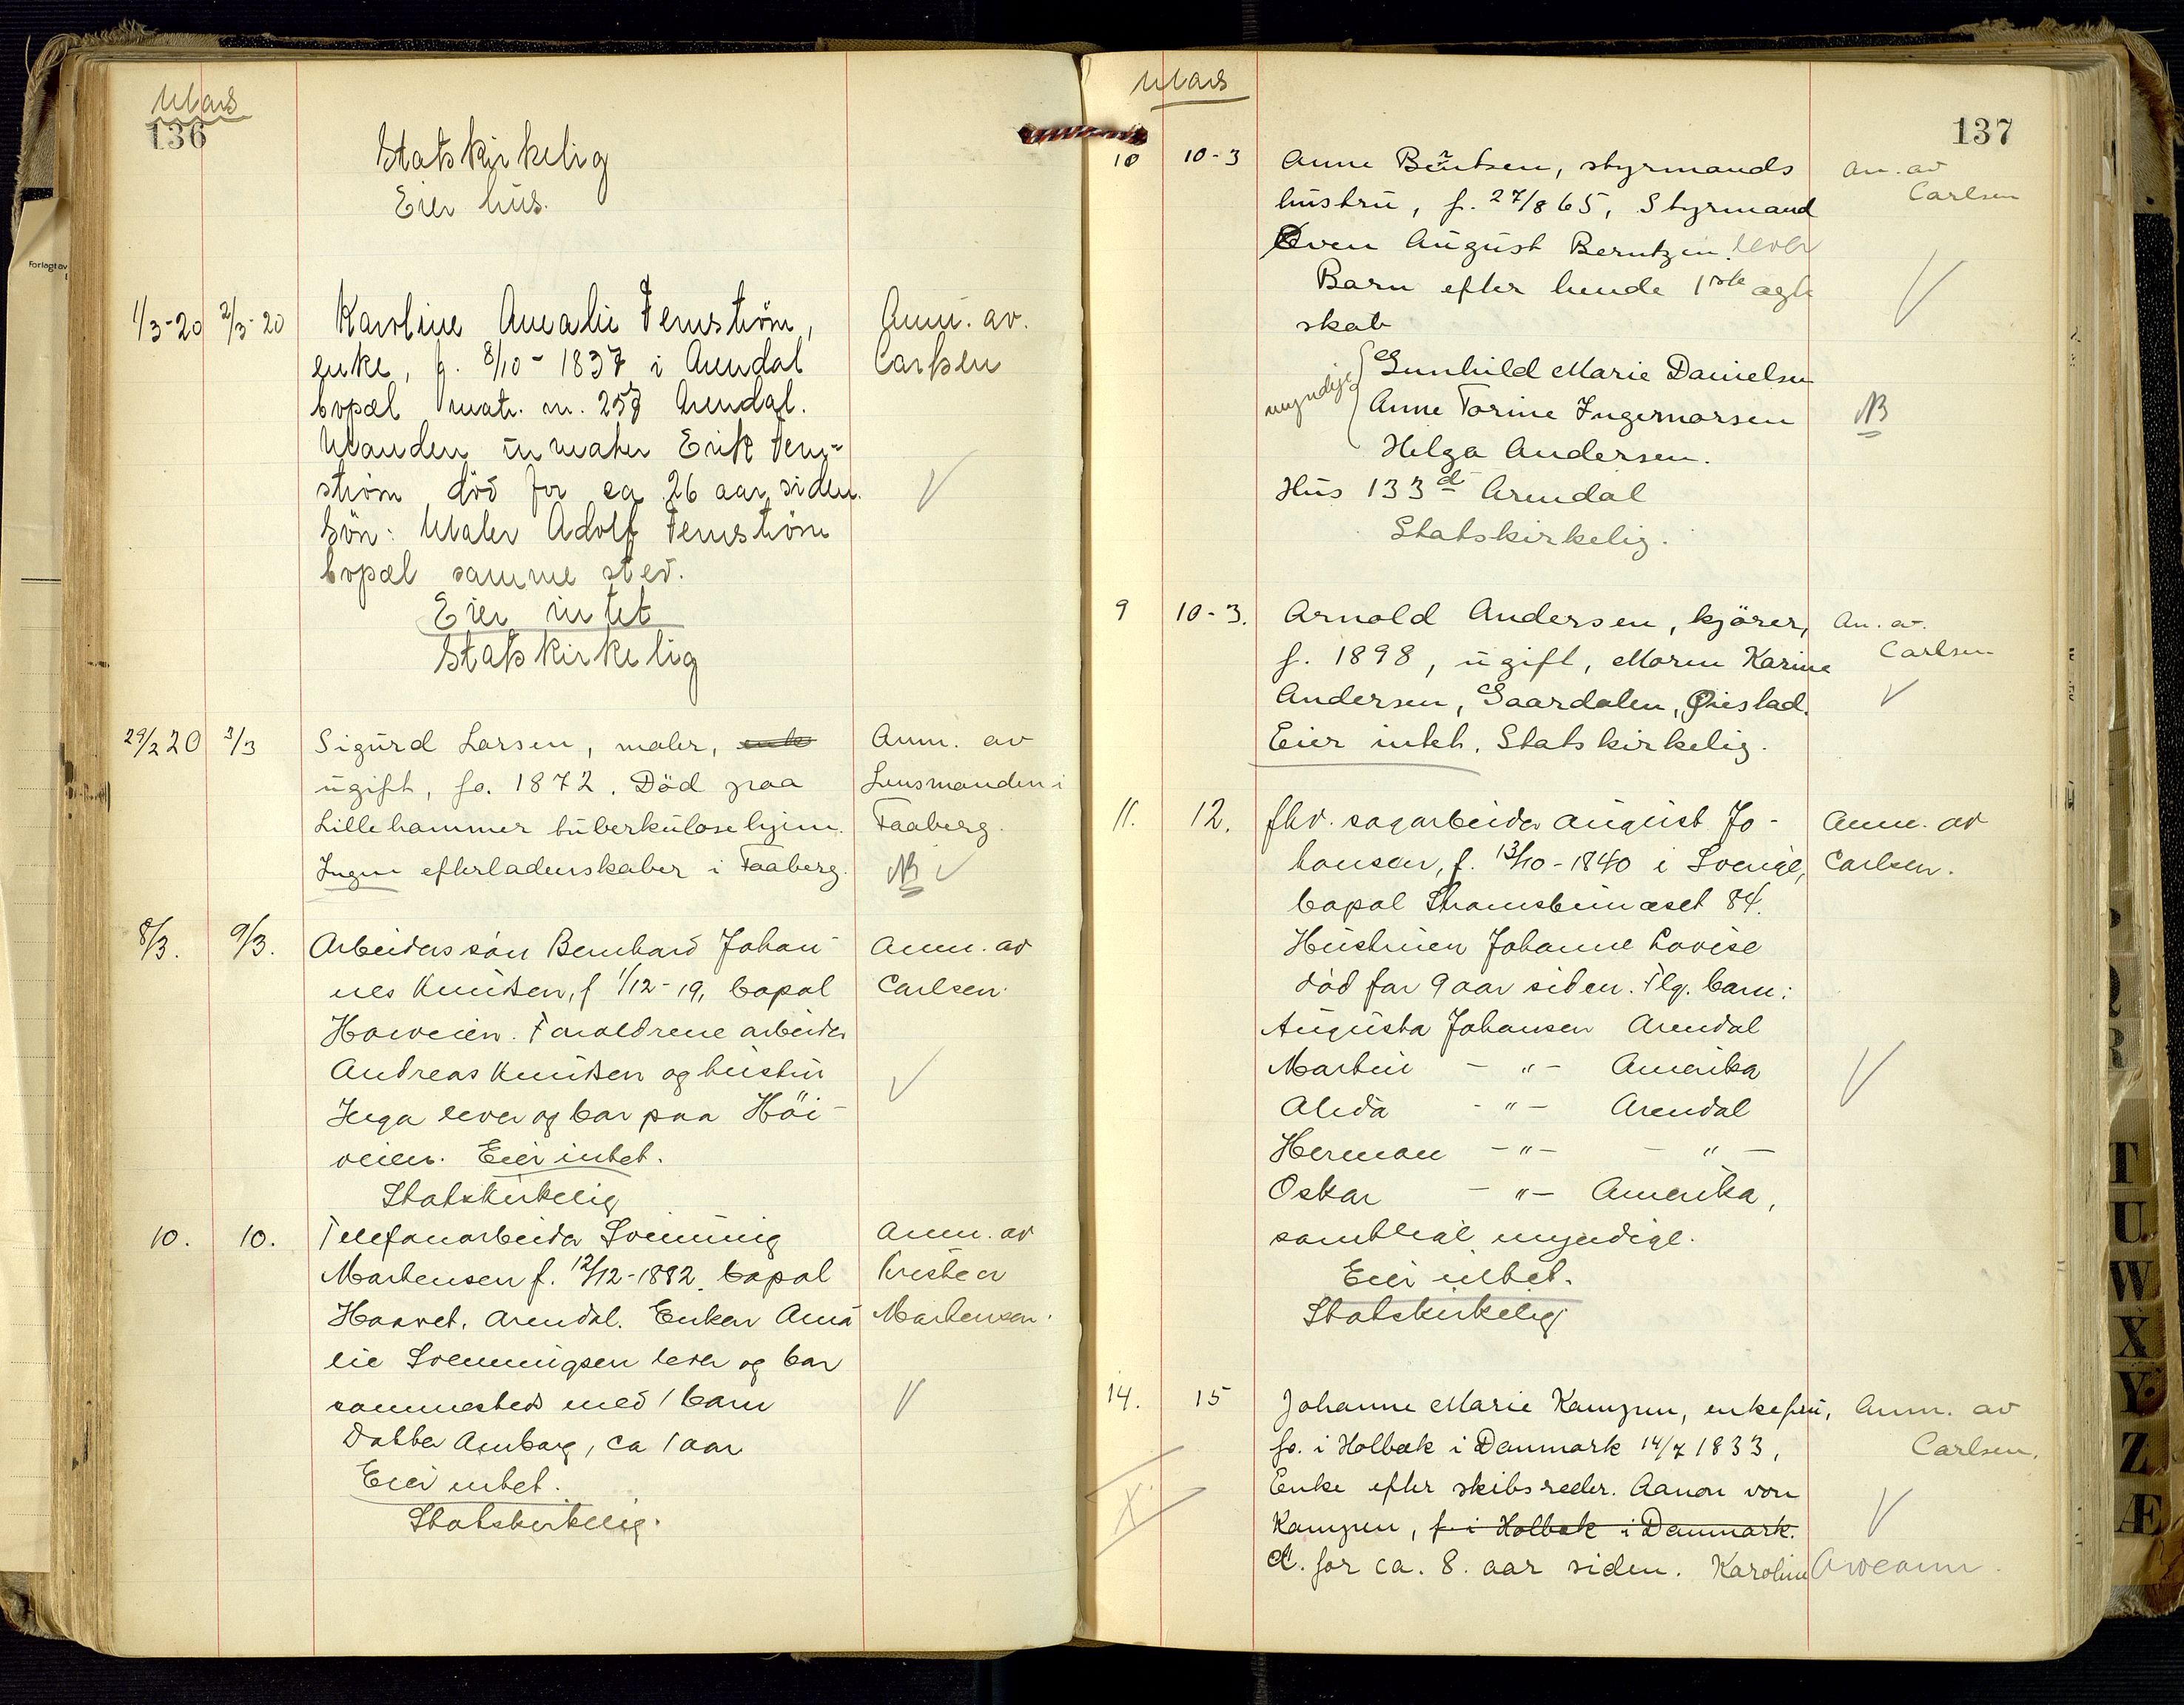 Mars
136
Statskirkelig
Eier hus.
1/3-20 2/3-20 Karoline Amalie Fernström, Anm. av.
enke, f. 8/10-1837 i Arendal Carlsen
bopæl matr. nr. 257 Arendal.
Manden urmaker Erik Fern-
ström död for ca 26 aar siden.
Sön: Maler Adolf Fernström
bopæl samme sted.
Eier intet
Statskirkelig
29/2 20 3/3 Sigurd Larsen, maler, enke Anm. av
ugift, fo. 1872. Död paa Lensmanden i
Lillehammer tuberkulosehjem. Faaberg.
Ingen efterladenskaber i Faaberg. NB
8/3. 9/3. Arbeiderssön Bernhard Johan- Anm. av
nes Knutsen, f 1/12-19, bopæl Carlsen.
Foraldrene arbeider
Andreas Knutsen og hustru
Inga lever og bor paa Höi-
veien. Eier intet.
Statskirkelig
10. 10. Telefonarbeider Svenning Anm. av
Martensen f. 12/12-1882. bopæl Kristen
Haavet. Arendal. Enken Ama Martensen.
lie Svenningsen lever og bor
sammesteds med 1 barn
Aanborg, ca 1 aar
Eier intet.
Statskirkelig.
Mars
137
10 10-3 Anne Berntsen, styrmands An. av
hustru, f. 27/8 65, Styrmand Carlsen
Even August Berntzen. lever
Barn efter hende 1ste ægte
skab
myndige Gunhild Marie Danielsen
Anne Torine Ingemarsen NB
Helga Andersen.
Hus 133 d Arendal
Statskirkelig.
9 10-3. Arnold Andersen, kjörer, An. av.
f. 1898, ugift, Moren Karine Carlsen
Andersen, Gaardalen, Øiestad.
Eier intet. Statskirkelig.
11. 12. fhv. sagarbeider August Jo- Anm. av
hansen, f. 13/10-1840 i Sverige, Carlsen.
bopæl Strømsbunæset 84.
Hustruen Johanne Lovise
död for 9 aar siden. Flg. barn:
Augusta Johansen Arendal
Martin - " - Amerika
Alida - " - Arendal
Herman - " - - " -
Oskar - " - Amerika,
samtlige myndige.
Eier intet.
Statskirkelig
14. 15 Johanne Marie Kampen, enkefru, Anm. av
fo. i Holbæk i Danmark 14/7 1833, Carlsen.
Enke efter skibsreder. Aanon von
Kampen, f. i Holbæk i Danmark.
d. for ca. 8. aar siden. Karoline
Forlagt av
Q
R
T
U
W
X
Y
Z
Æ